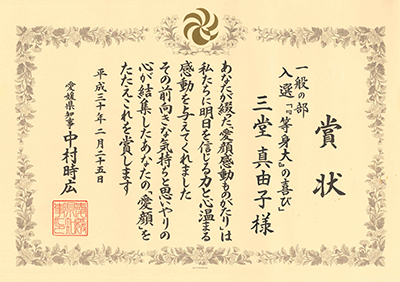 賞状
一般の部
入選「『等身大』の喜び」
三堂 真由子 様
あなたが綴った「愛顔感動ものがたり」は
私たちに明日を信じる力と心温まる
感動を与えてくれました
その前向きな気持ちと思いやりの
心が結集したあなたの「愛顔」を
たたえこれを賞します
平成三十年 二月二十五日
愛媛県知事 中村時広